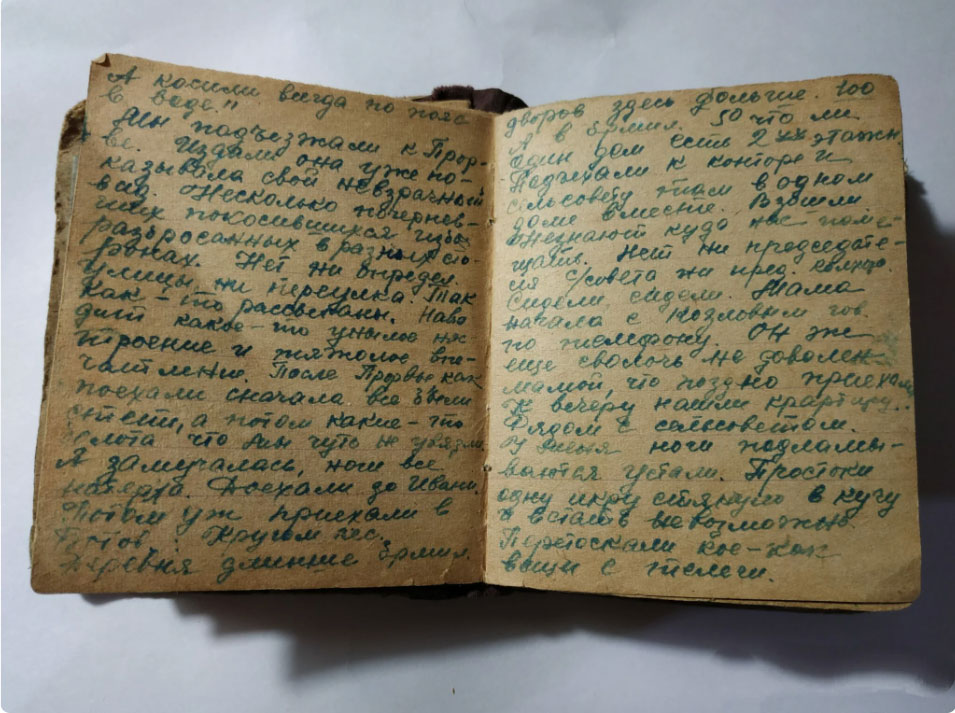 А косили всегда по пояс
в воде!!
Мы подъезжали к Прор-
ве. Издали она уже по-
казывала свой невзрачный
вид. Несколько почернев-
ших покосившихся избы
разбросанных в разных сто-
ронах. Нет ни определ.
улицы ни переулка. Так
как-то рассыпаны. Наво
дит какое-то унылое нас
троение и тяжолое впе-
чатление. После Прорвы как
поехали сначала все были
степи, а потом какие-то
болота что мы чуть не увязли
Я замучалась, ноги все
натерла. Доехали до Ивани.
Потом уж приехали в
Кругом лес.
Деревня длинше Ермил.
дворов здесь больше. 100
А в Ермил. 50 что ли
Один дом есть 2ух этажн
Подъехали к конторе и
сельсовету там в одном
доме вместе. Взошли
Незнают куда нас поме-
щать. Нет ни председате-
ля с/совета ни пред. колхоза
Сидели, сидели. Мама
начала с Козловым гов.
по телефону. Он же
еще сволочь не доволен
мамой, что поздно приехали
К вечеру нашли квартиру.
Рядом с сельсоветом.
У меня ноги подламы-
ваются устали. Простоки
одну икру стянуло в кучу
и встать невозможно.
Перетоскали кое-как
вещи с телеги.